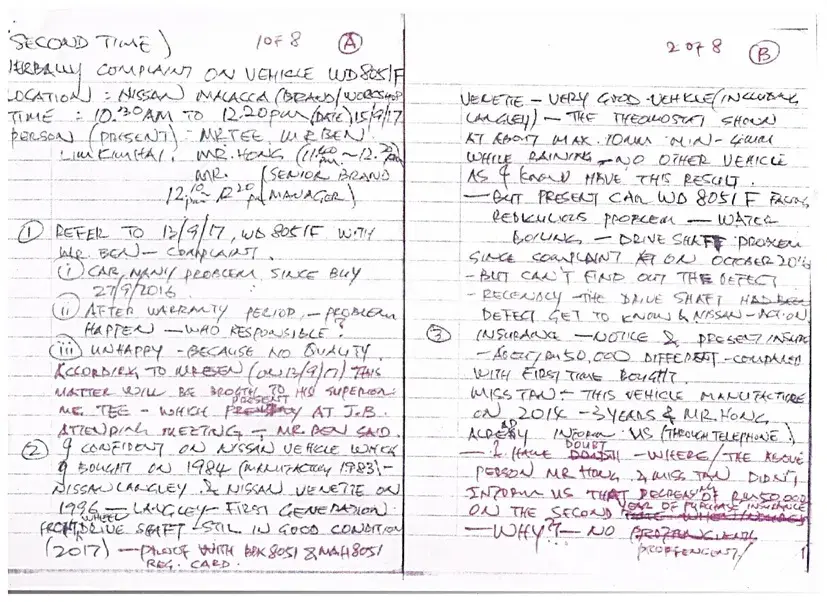 SECOND TIME) 1 OF 8 (A)
VERBALLY COMPLAINT ON VEHICLE WD 8051 F
LOCATION : NISSAN MALACCA (BRAND/WORKSHOP
TIME : 10.30AM TO 12.20pm (DATE) 15/9/17
PERSON (PRESENT) : MR TEE, MR BEN
LIM KIM HAI, MR. HONG (11.40 am ~ 12.20 pm)
MR. (SENIOR BRAND
12.10 pm ~ 12.20 pm MANAGER)
① REFER TO 13/9/17, WD 8051F WITH
MR. BEN - COMPLAINT.
(i) CAR, MANY PROBLEM SINCE BUY
27/9/2016.
(ii) AFTER WARRANTY PERIOD, - PROBLEM
HAPPEN - WHO RESPONSIBLE?
(iii) UNHAPPY - BECAUSE NO QUALITY.
ACCORDING TO MR BEN (ON 13/9/17) THIS
MATTER WILL BE BROGTH TO HIS SUPERIOR
MR. TEE - WHICH PRESENT AT J.B.
ATTENDING MEETING - MR. BEN SAID.
② I CONFIDENT ON NISSAN VEHICLE WHICH
I BOUGHT ON 1984 (MANUFACTORY 1983) -
NISSAN LANGLEY & NISSAN VENETTE ON
1996 - LANGLEY - FIRST GENERATION
FRONT WHEEL DRIVE SHAFT - STIL IN GOOD CONDITION
(2017) - PROOF WITH BBK 8051 & NAH 8051
REG. CARD.
2 OF 8 (B)
VENETTE - VERY GOOD VEHICLE (INCLUDING
LANGLEY) - THE THEOMOSTAT SHOWN
AT ABOUT MAX. 10MM MIN - 4MM
WHILE RAINING - NO OTHER VEHICLE
AS I KNOW HAVE THIS RESULT.
- BUT PRESENT CAR WD 8051 F FACING
REDICULIOUS PROBLEM - WATER
BOILING - DRIVE SHAFT PROBLEM
SINCE COMPLAINT ON OCTOBER 2016
- BUT CAN'T FIND OUT THE DEFECT
- RECENDLY - THE DRIVE SHAFT HAD BEEN
DEFECT GET TO KNOW & NISSAN - ACTION
③ INSURANCE - NOTICE & PRESENT INSUR
- ABOUT RM50,000 DIFFERENT - COMPARED
WITH FIRST TIME BOUGHT.
MISS TAN - THIS VEHICLE MANUFACTURE
ON 2014 - 3 YEARS & MR. HONG
ALREADY INFORM US (THROUGH TELEPHONE)
- I HAVE DOUBT - WHERE / THE ABOVE
PERSON MR HONG & MISS TAN DIDN'T
INFORM US THAT DECREASING OF RM50,000
ON THE SECOND YEAR OF PURCHASE INSURANCE
- WHY? - NO